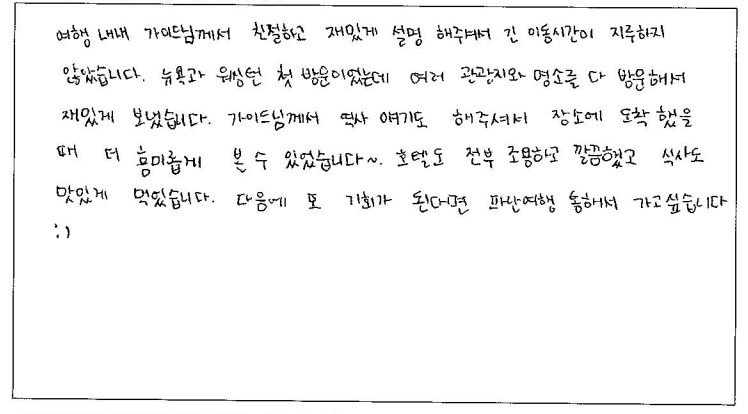 여행 내내 가이드님께서 친절하고 재밌게 설명 해주셔서 긴 이동시간이 지루하지
않았습니다. 뉴욕과 워싱턴 첫 방문이었는데 여러 관광지와 명소를 다 방문해서
재밌게 보냈습니다. 가이드님께서 역사 얘기도 해주셔서 장소에 도착 했을
때 더 흥미롭게 볼 수 있었습니다~. 호텔도 전부 조용하고 깔끔했고 식사도
맛있게 먹었습니다. 다음에 또 기회가 된다면 파란여행 통해서 가고싶습니다
:)